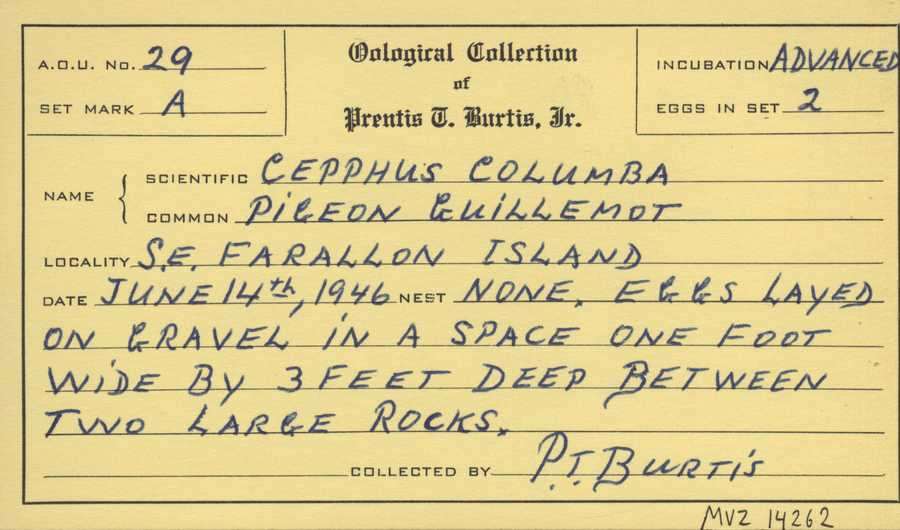 A.O.U. No. 29
SET MARK A
Oological Collection
of
Prentis T. Burtis, Jr.
INCUBATION ADVANCED
EGGS IN SET 2
NAME { SCIENTIFIC CEPPHUS COLUMBA
COMMON PIGEON GUILLEMOT
LOCALITY S.E. FARALLON ISLAND
DATE JUNE 14th, 1946 NEST NONE. EGGS LAYED
ON GRAVEL IN A SPACE ONE FOOT
WIDE BY 3 FEET DEEP BETWEEN
TWO LARGE ROCKS.
COLLECTED BY P.T. BURTIS
MVZ 14262